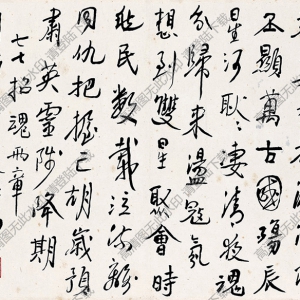 丕顯萬古國殤辰
星河耿耿淒清夜魂
兮歸來盪氛
想到雙星聚會時
民數載泣流離
同仇把握亡胡歲預
肅英靈陟降期
七七招魂兩章